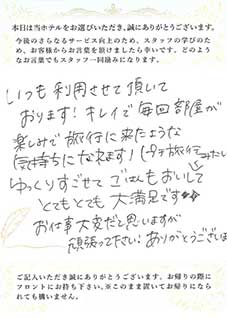 本日は当ホテルをお選びいただき、誠にありがとうございます。
今後のさらなるサービス向上のため、スタッフの学びのため、お客様からお言葉を頂けましたら幸いです。どのようなお言葉でもスタッフ一同励みになります。
いつも利用させて頂いて
おります! キレイで毎回部屋が
楽しみで旅行に来たような
気持ちになれます! (プチ旅行みたい
ゆっくりすごせて ごはんもおいしく
とてもとても 大満足です
お仕事大変だと思いますが
頑張って下さい! ありがとうございま
ご記入いただき誠にありがとうございます。お帰りの際にフロントにお持ち下さい。※このまま置いてお帰りになられても構いません。